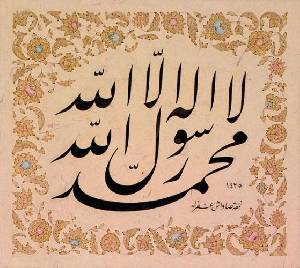 لا اله الا الله
محمد رسول الله
١٤٢٥